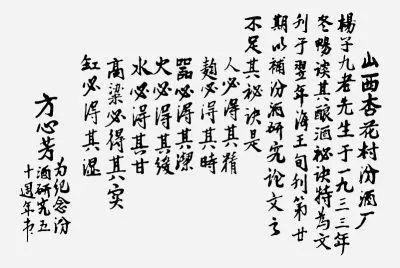 山西杏花村汾酒厂
楊子九老先生于一九三三年
冬暢谈其酿酒秘诀特為文
刊于翌年海王旬刊第廿
期以補汾酒研究論文之
不足其秘诀是
人必得其精
麴必得其時
器必得其潔
火必得其缓
水必得其甘
高粱必得其实
缸必得其湿
方心芳
为纪念汾
酒研究五
十週年书